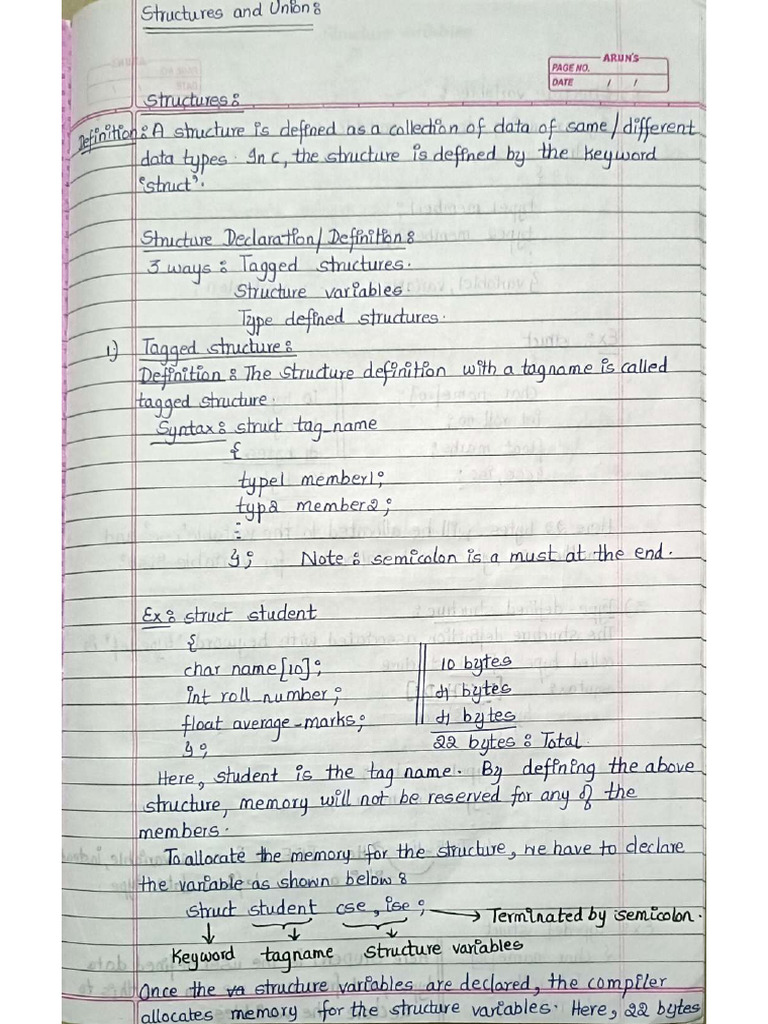 Structures and Unions
ARUN'S
PAGE NO.
DATE / /
Structures:
Definition: A structure is defined as a collection of data of same/different
data types. In c, the structure is defined by the keyword
'struct'.
Structure Declaration/Definition:
3 ways: Tagged structures.
Structure variables.
Type defined structures.
1) Tagged structure:
Definition: The structure definition with a tagname is called
tagged structure.
Syntax: struct tag_name
{
type1 member1;
typ2 member2;
:
}; Note: semicolon is a must at the end.
Ex: struct student
{
char name[10]; 10 bytes
int roll_number; 4 bytes
float average_marks; 4 bytes
}; 22 bytes: Total.
Here, student is the tag name. By defining the above
structure, memory will not be reserved for any of the
members.
To allocate the memory for the structure, we have to declare
the variable as shown below:
struct student cse, ise; → Terminated by semicolon.
Keyword tagname structure variables
Once the va structure variables are declared, the compiler
allocates memory for the structure variables. Here, 22 bytes